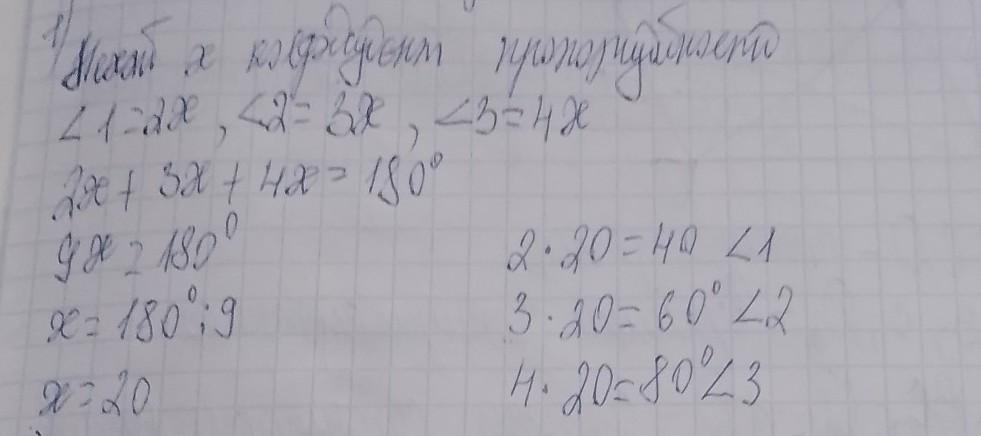 1) Нехай x коефіцієнт пропорційності
∠1=2x, ∠2=3x, ∠3=4x
2x+3x+4x=180°
9x=180°
x=180°:9
x=20
2·20=40 ∠1
3·20=60° ∠2
4·20=80° ∠3